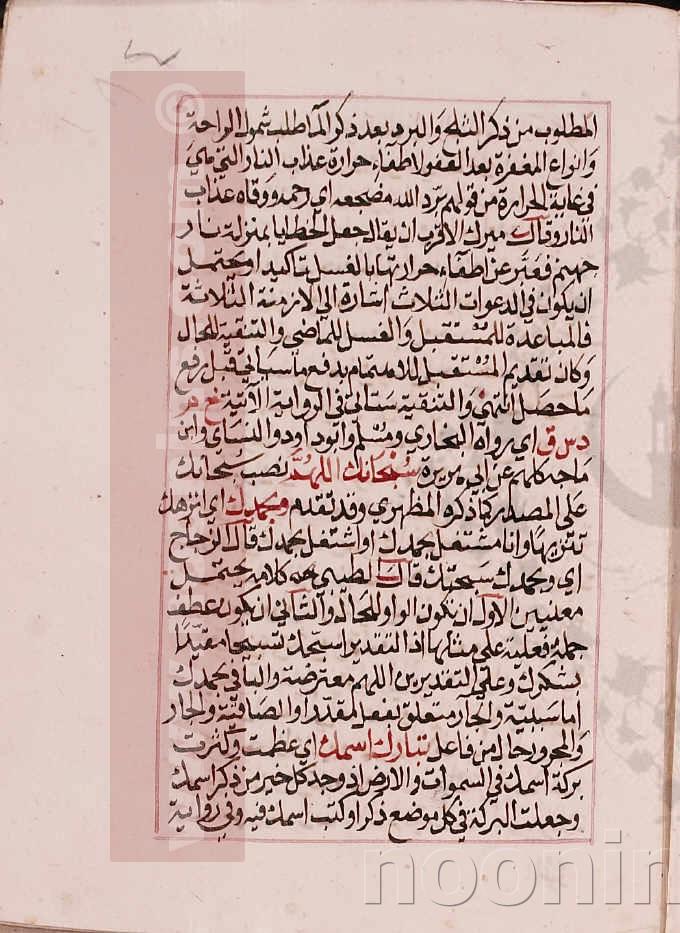 المطلوب من ذكر الثلج والبرد بعد ذكر الماء طلب شمول الراحة
وانواع المغفرة بعد العفو لاطفاء حرارة عذاب النار التي هي
في غاية الحرارة من قولهم برّد الله مضجعه اي رحمه ووقاه عذاب
النار وقال ميرك الاقرب ان يقال جعل الخطايا بمنزلة نار
جهنم فعبّر عن اطفاء حرارتها بالغسل تاكيدا ويحتمل
ان يكون في الدعوات الثلاث اشارة الي الازمنة الثلاثة
فالمباعدة للمستقبل والغسل للماضي والتنقية للحال
وكان تقديم المستقبل للاهتمام بدفع ما سياتي قبل رفع
ما حصل انتهي والتنقية ستاتي في الرواية الآتية خ م
د س ق اي رواه البخاري ومسلم وابو داود والنساي وابن
ماجه كلهم عن ابي هريرة سبحانك اللهم نصب سبحانك
علي المصدر كما ذكره المظهري وقد تقدم وبحمدك اي انزهك
تنزيها وانا مشتغل بحمدك او اشتغل بحمدك قال الزجاج
اي وبحمدك سبحتك قال الطيبي هه كلامه يحتمل
معنيين الاول ان تكون الواو للحال والثاني ان يكون عطف
جملة فعلية علي مثلها اذ التقدير اسبحك تسبيحا مقيّدا
بشكرك وعلي التقديرين اللهم معترضة والبا في بحمدك
اما سببية والجار متعلق بفعل مقدر او الصاقية والجار
والمجرور حال من فاعل تبارك اسمك اي عظمت وكثرت
بركة اسمك في السموات والارض اذ وجد كل خير من ذكر اسمك
وجعلت البركة في كل موضع ذكر او كتب اسمك فيه وفي رواية
noonin